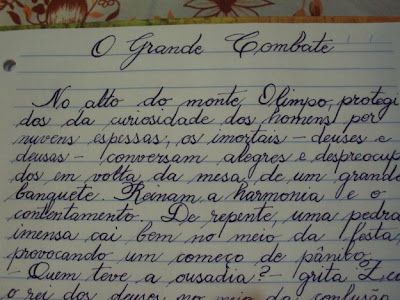 O Grande Combate
No alto do monte Olimpo, protegi
dos da curiosidade dos homens por
nuvens espessas, os imortais - deuses e
deusas - conversam alegres e despreocup
dos em volta da mesa de um grande
banquete. Reinam a harmonia e o
contentamento. De repente, uma pedra
imensa cai bem no meio da festa,
provocando um começo de pânico.
- Quem teve a ousadia? grita Zeu
o rei dos deuses no meio da confusão